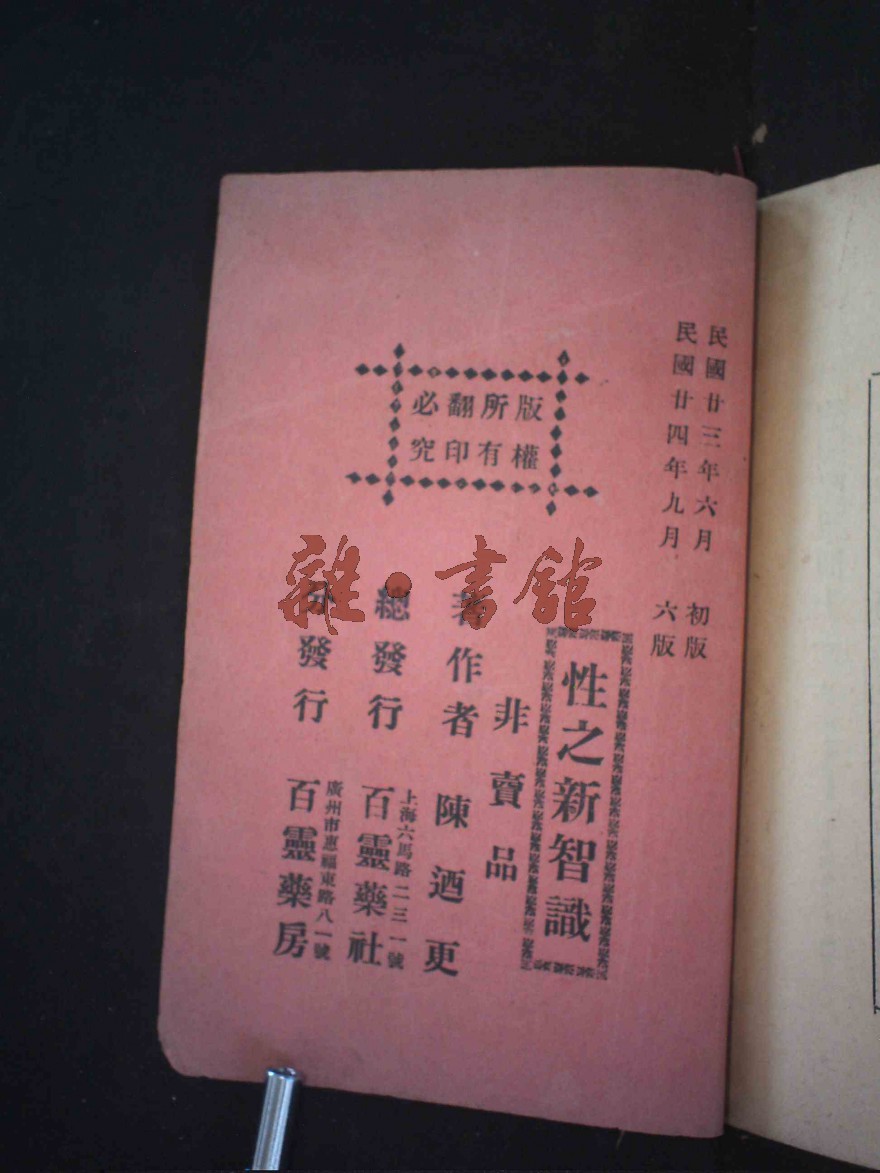 民國廿三年六月 初版
民國廿四年九月 六版
版權
所有
翻印
必究
性之新智識
非賣品
著作者 陳迺更
總發行 上海六馬路二三一號
百靈藥社
分發行 廣州市惠福東路八一號
百靈藥房
雜·書館